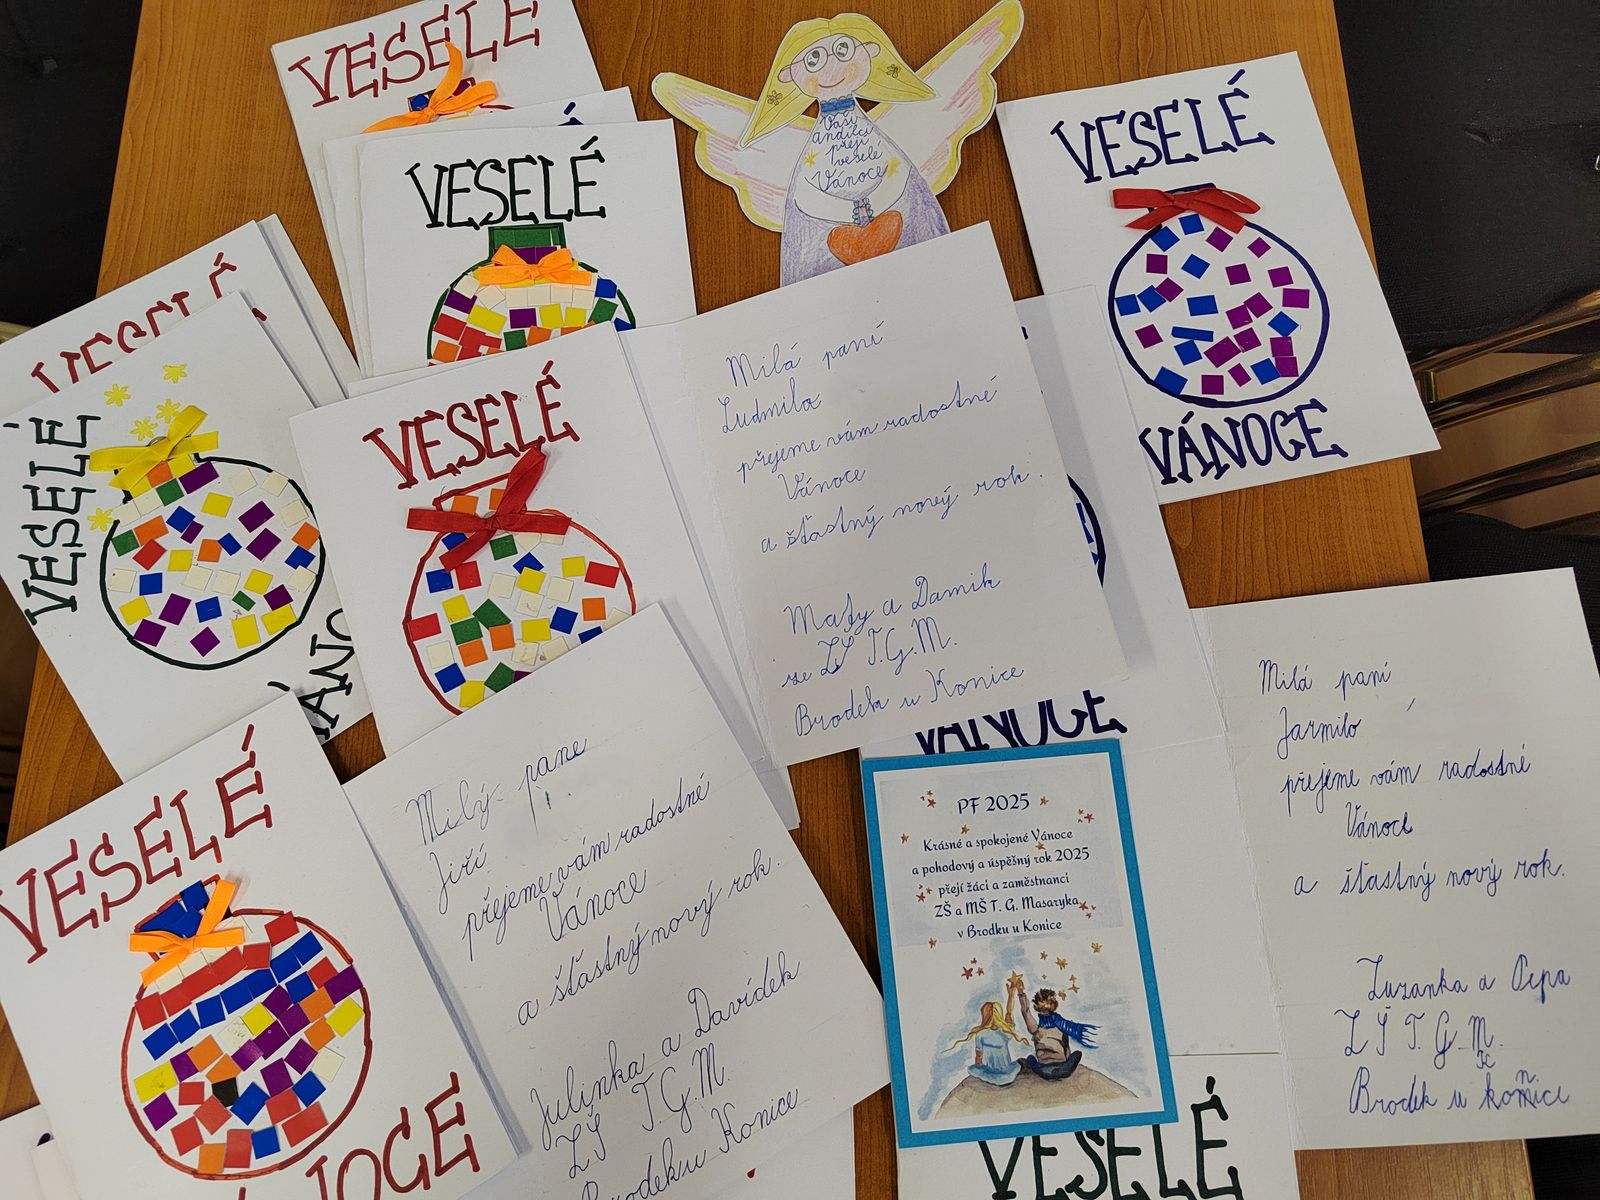 VESELÉ
VESELÉ
Vaši
andílci
přejí
veselé
Vánoce
VESELÉ
VÁNOCE
VESELÉ
VESELÉ
VESELÉ
Milá paní
Ludmilo
přejeme vám radostné
Vánoce
a šťastný nový rok.
Maty a Damik
ze ZŠ T.G.M.
Brodek u Konice
VÁNOCE
VESELÉ
Milý pane
Jiří
přejeme vám radostné
Vánoce
a šťastný nový rok.
Julinka a Davídek
ZŠ T.G.M.
Brodek u Konice
PF 2025
Krásné a spokojené Vánoce
a pohodový a úspěšný rok 2025
přejí žáci a zaměstnanci
ZŠ a MŠ T. G. Masaryka
v Brodku u Konice
Milá paní
Jarmilo
přejeme vám radostné
Vánoce
a šťastný nový rok.
Zuzanka a Pepa
ZŠ T. G. M.
Brodek u Konice
VESELÉ